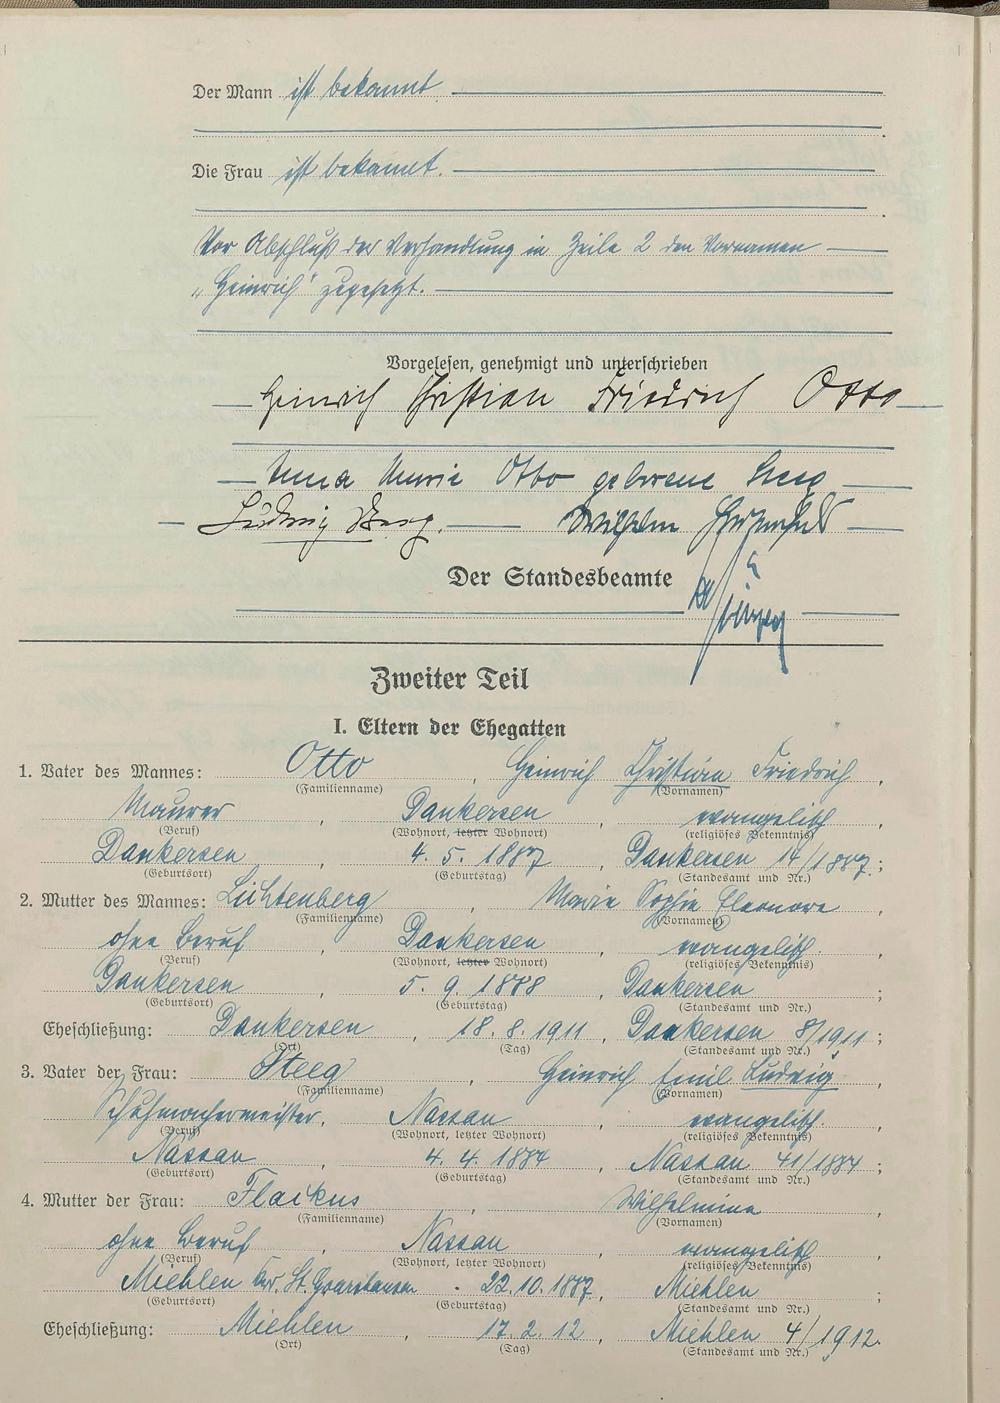 Der Mann ist bekannt
Die Frau ist bekannt.
Vor Abschluß der Verhandlung in Zeile 2 den Vornamen
„Heinrich" zugesetzt.
Vorgelesen, genehmigt und unterschrieben
Heinrich Christian Friedrich Otto
Anna Marie Otto geborene Steeg
Ludwig Steeg. Wilhelm
Der Standesbeamte
Zweiter Teil
I. Eltern der Ehegatten
1. Vater des Mannes: Otto, Heinrich Christian Friedrich,
(Familienname) (Vornamen)
Maurer, Dankersen, evangelisch
(Beruf) (Wohnort, letzter Wohnort) (religiöses Bekenntnis)
Dankersen, 4. 5. 1887, Dankersen 14/1887.;
(Geburtsort) (Geburtstag) (Standesamt und Nr.)
2. Mutter des Mannes: Lichtenberg, Marie Sophie Eleonore,
(Familienname) (Vornamen)
ohne Beruf, Dankersen, evangelisch.,
(Beruf) (Wohnort, letzter Wohnort) (religiöses Bekenntnis)
Dankersen, 5. 9. 1888, Dankersen;
(Geburtsort) (Geburtstag) (Standesamt und Nr.)
Eheschließung: Dankersen, 18. 8. 1911, Dankersen 8/1911;
(Ort) (Tag) (Standesamt und Nr.)
3. Vater der Frau: Steeg, Heinrich Emil Ludwig,
(Familienname) (Vornamen)
Schuhmachermeister, Nassau, evangelisch.,
(Beruf) (Wohnort, letzter Wohnort) (religiöses Bekenntnis)
Nassau, 4. 4. 1884, Nassau 41/1884;
(Geburtsort) (Geburtstag) (Standesamt und Nr.)
4. Mutter der Frau: Flaikus, Wilhelmine,
(Familienname) (Vornamen)
ohne Beruf, Nassau, evangelisch,
(Beruf) (Wohnort, letzter Wohnort) (religiöses Bekenntnis)
Miehlen Kr. St. Goarshausen. 22. 10. 1887, Miehlen;
(Geburtsort) (Geburtstag) (Standesamt und Nr.)
Eheschließung: Miehlen, 17. 2. 12, Miehlen 4/1912.
(Ort) (Tag) (Standesamt und Nr.)